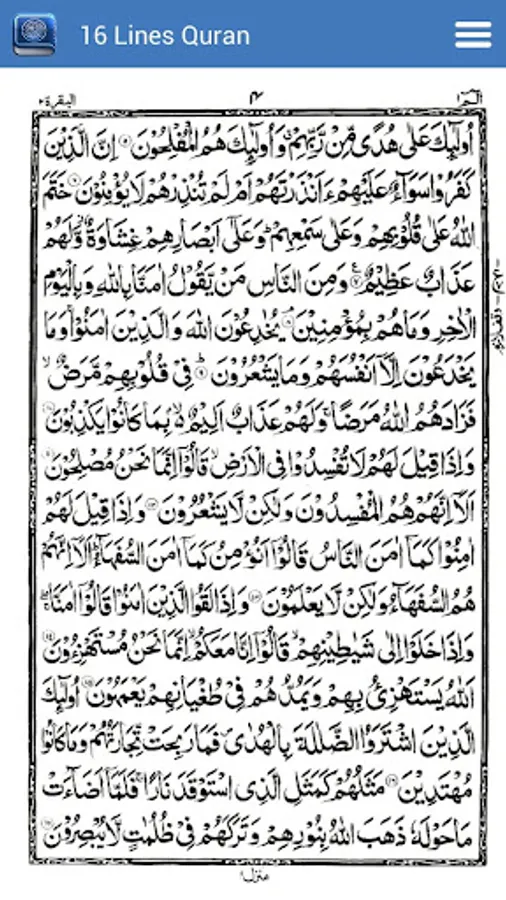 16 Lines Quran
الٓمّٓ ١
٤
البقرة ٢
اُولٰٓئِكَ عَلٰى هُدًى مِّنْ رَّبِّهِمْ ۙ وَاُولٰٓئِكَ هُمُ الْمُفْلِحُوْنَ ۝٥ اِنَّ الَّذِيْنَ
كَفَرُوْا سَوَآءٌ عَلَيْهِمْ ءَاَنْذَرْتَهُمْ اَمْ لَمْ تُنْذِرْهُمْ لَا يُؤْمِنُوْنَ ۝٦ خَتَمَ
اللّٰهُ عَلٰى قُلُوْبِهِمْ وَعَلٰى سَمْعِهِمْ ؕ وَعَلٰٓى اَبْصَارِهِمْ غِشَاوَةٌ ۫ وَّلَهُمْ
عَذَابٌ عَظِيْمٌ ۝٧ وَمِنَ النَّاسِ مَنْ يَّقُوْلُ اٰمَنَّا بِاللّٰهِ وَبِالْيَوْمِ
الْاٰخِرِ وَمَا هُمْ بِمُؤْمِنِيْنَ ۝٨ يُخٰدِعُوْنَ اللّٰهَ وَالَّذِيْنَ اٰمَنُوْا ۚ وَمَا
يَخْدَعُوْنَ اِلَّاۤ اَنْفُسَهُمْ وَمَا يَشْعُرُوْنَ ۝٩ فِيْ قُلُوْبِهِمْ مَّرَضٌ ۙ
فَزَادَهُمُ اللّٰهُ مَرَضًا ۚ وَلَهُمْ عَذَابٌ اَلِيْمٌۢ ۙ بِمَا كَانُوْا يَكْذِبُوْنَ ۝١٠
وَاِذَا قِيْلَ لَهُمْ لَا تُفْسِدُوْا فِى الْاَرْضِ ۙ قَالُوْۤا اِنَّمَا نَحْنُ مُصْلِحُوْنَ ۝١١
اَلَاۤ اِنَّهُمْ هُمُ الْمُفْسِدُوْنَ وَلٰكِنْ لَّا يَشْعُرُوْنَ ۝١٢ وَاِذَا قِيْلَ لَهُمْ
اٰمِنُوْا كَمَاۤ اٰمَنَ النَّاسُ قَالُوْۤا اَنُؤْمِنُ كَمَاۤ اٰمَنَ السُّفَهَآءُ ؕ اَلَاۤ اِنَّهُمْ
هُمُ السُّفَهَآءُ وَلٰكِنْ لَّا يَعْلَمُوْنَ ۝١٣ وَاِذَا لَقُوا الَّذِيْنَ اٰمَنُوْا قَالُوْۤا اٰمَنَّا ۖۚ
وَاِذَا خَلَوْا اِلٰى شَيٰطِيْنِهِمْ ۙ قَالُوْۤا اِنَّا مَعَكُمْ ۙ اِنَّمَا نَحْنُ مُسْتَهْزِءُوْنَ ۝١٤
اَللّٰهُ يَسْتَهْزِئُ بِهِمْ وَيَمُدُّهُمْ فِيْ طُغْيَانِهِمْ يَعْمَهُوْنَ ۝١٥ اُولٰٓئِكَ
الَّذِيْنَ اشْتَرَوُا الضَّلٰلَةَ بِالْهُدٰى ۪ فَمَا رَبِحَتْ تِّجَارَتُهُمْ وَمَا كَانُوْا
مُهْتَدِيْنَ ۝١٦ مَثَلُهُمْ كَمَثَلِ الَّذِى اسْتَوْقَدَ نَارًا ۚ فَلَمَّاۤ اَضَآءَتْ
مَا حَوْلَهٗ ذَهَبَ اللّٰهُ بِنُوْرِهِمْ وَتَرَكَهُمْ فِيْ ظُلُمٰتٍ لَّا يُبْصِرُوْنَ ۝١٧
منزل ١